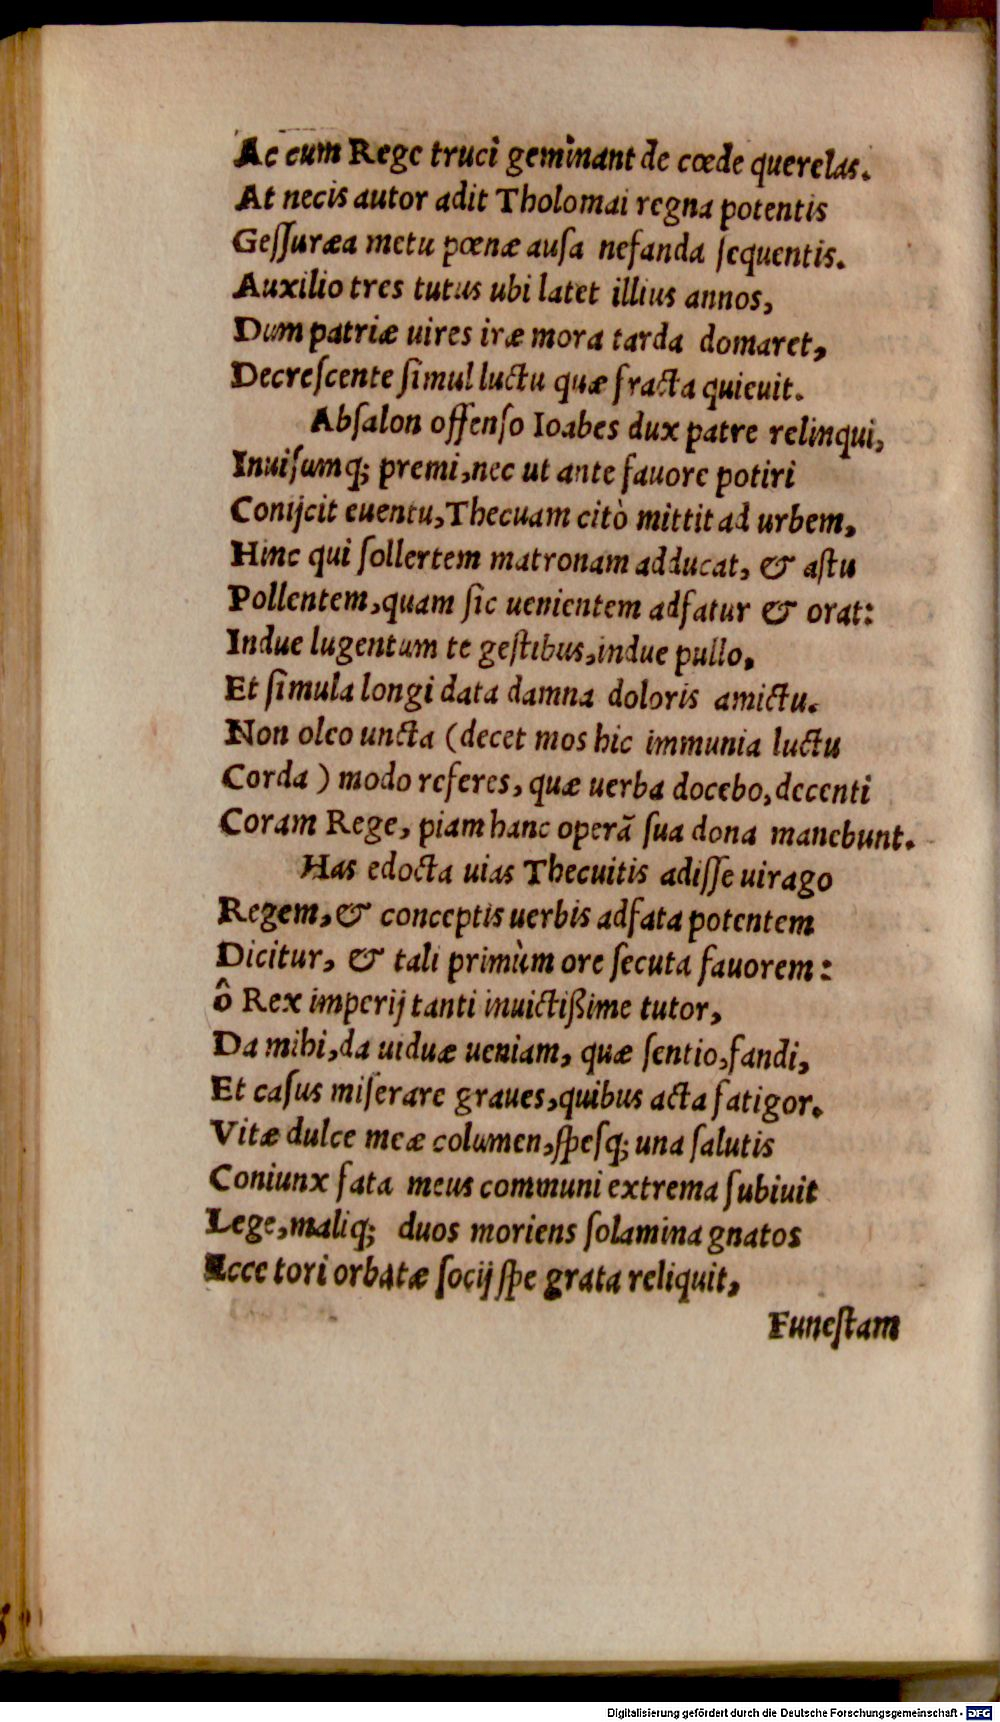 Ac cum Rege truci geminant de cœde querelas.
At necis autor adit Tholomai regna potentis
Geſſuræa metu pœnæ auſa nefanda ſequentis.
Auxilio tres tutus ubi latet illius annos,
Dum patriæ uires iræ mora tarda domaret,
Decreſcente ſimul luctu quæ fracta quieuit.
Abſalon offenſo Ioabes dux patre relinqui,
Inuiſumq; premi, nec ut ante fauore potiri
Conijcit euentu, Thecuam citò mittit ad urbem,
Hinc qui ſollertem matronam adducat, & aſtu
Pollentem, quam ſic uenientem adfatur & orat:
Indue lugentum te geſtibus, indue pullo,
Et ſimula longi data damna doloris amictu.
Non oleo uncta (decet mos hic immunia luctu
Corda) modo referes, quæ uerba docebo, decenti
Coram Rege, piam hanc operã ſua dona manebunt.
Has edocta uias Thecuitis adiſſe uirago
Regem, & conceptis uerbis adfata potentem
Dicitur, & tali primùm ore ſecuta fauorem:
ô Rex imperij tanti inuictißime tutor,
Da mihi, da uiduæ ueniam, quæ ſentio, fandi,
Et caſus miſerare graues, quibus acta fatigor.
Vitæ dulce meæ columen, ſpeſq; una ſalutis
Coniunx fata meus communi extrema ſubiuit
Lege, maliq; duos moriens ſolamina gnatos
Ecce tori orbatæ ſocij ſpe grata reliquit,
Funeſtam
Digitalisierung gefördert durch die Deutsche Forschungsgemeinschaft - DFG